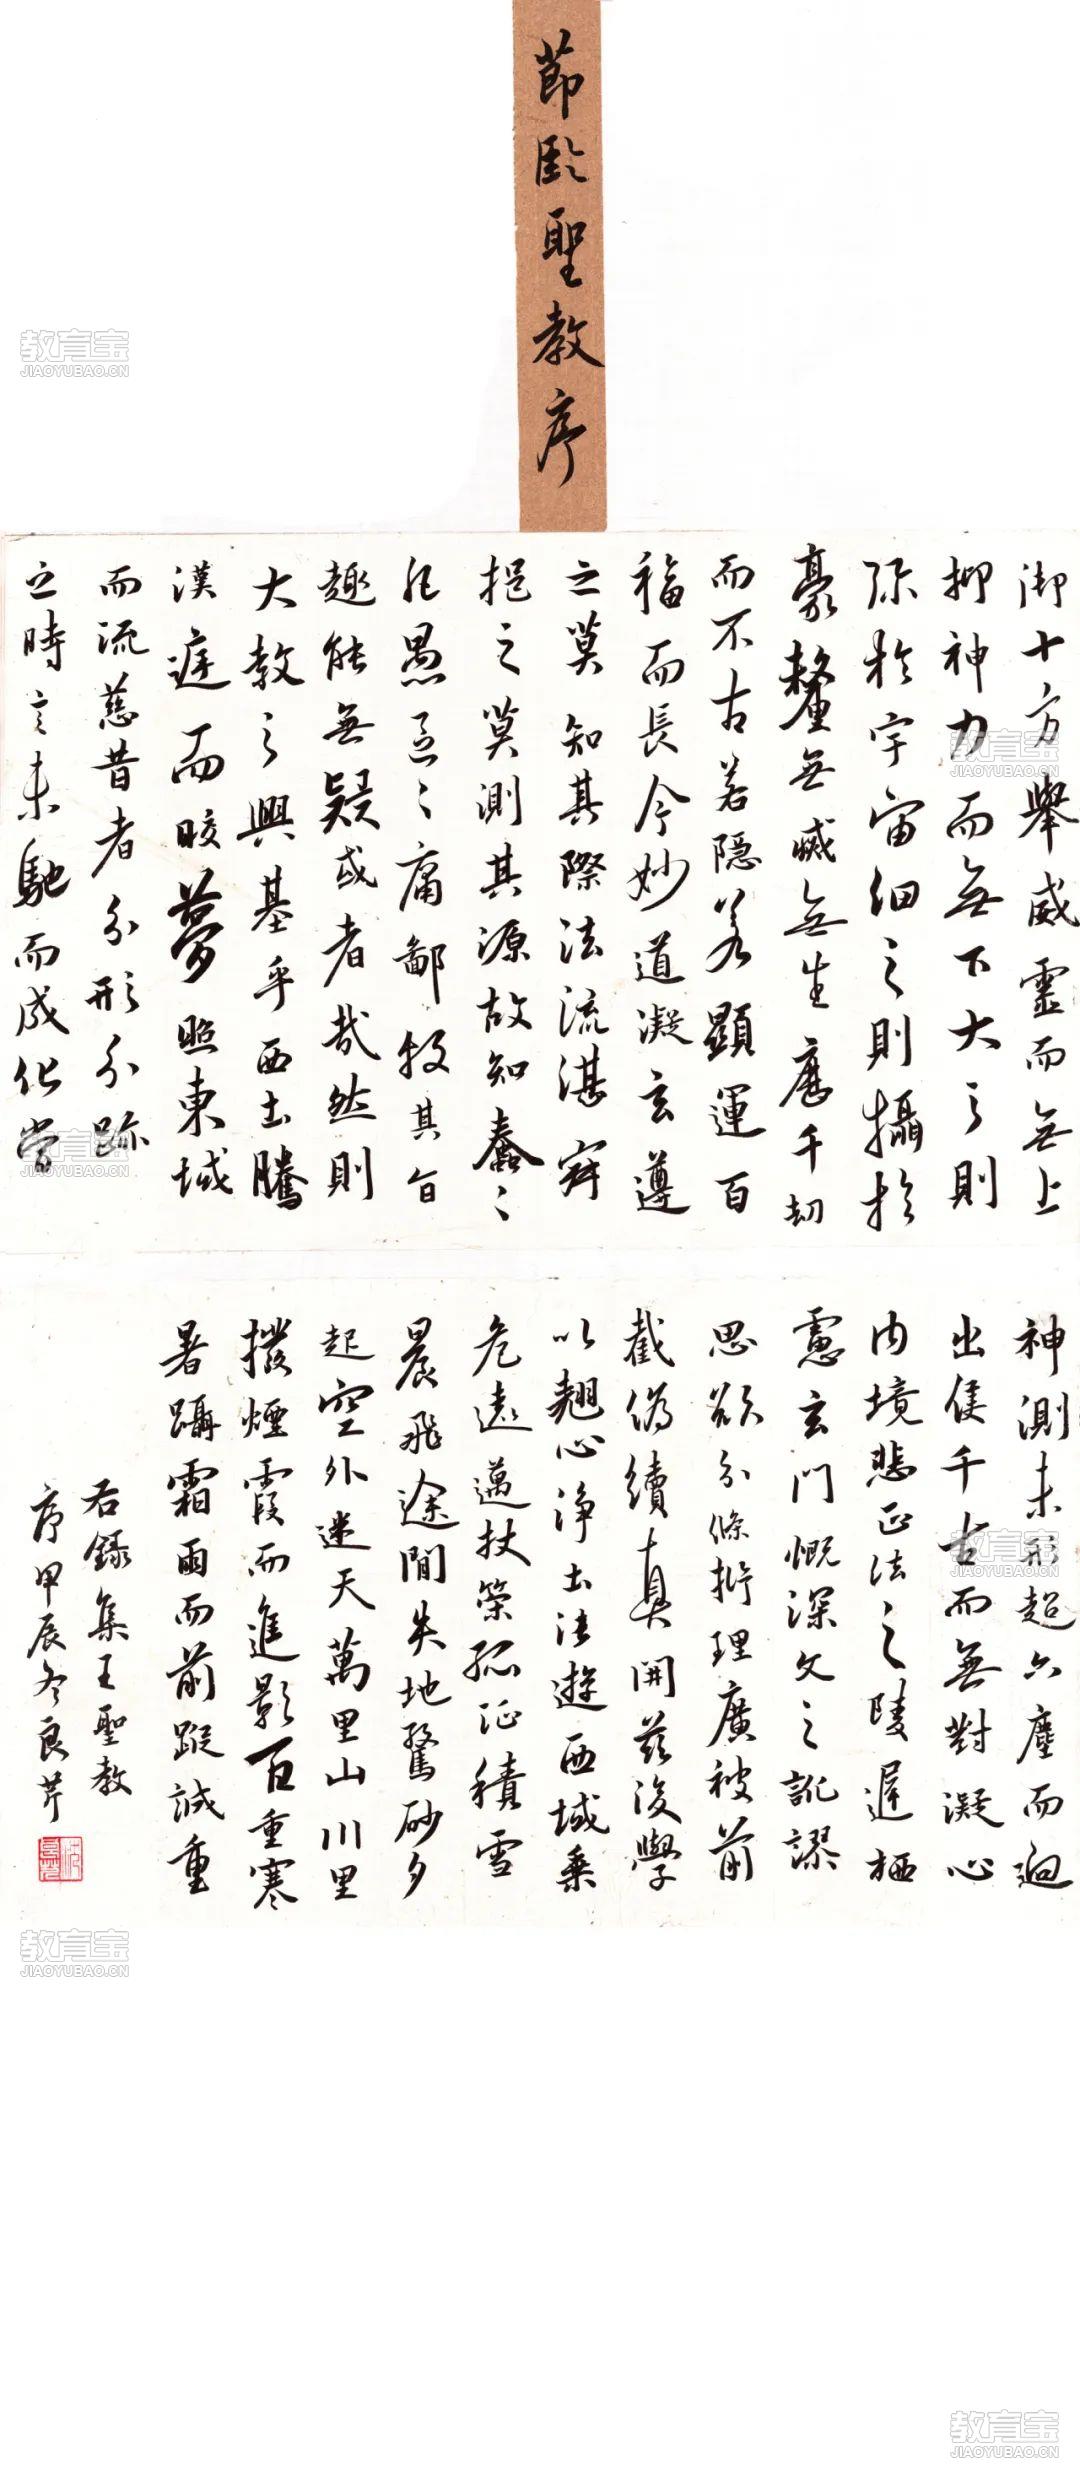 節臨聖教序
御十方舉威靈而無上
抑神力而無下大之則
弥於宇宙細之則攝於
豪釐無滅無生歷千劫
而不古若隱若顯運百
福而長今妙道凝玄遵
之莫知其際法流湛寂
挹之莫測其源故知蠢〻
凡愚區〻庸鄙投其旨
趣能無疑或者哉然則
大教之興基乎西土騰
漢庭而皎夢照東域
而流慈昔者分形分跡
之時言未馳而成化當
神測未形超六塵而迥
出隻千古而無對凝心
内境悲正法之陵遲栖
慮玄門慨深文之訛謬
思欲分條析理廣彼前
截偽續真開茲後學
以翹心淨土法遊西域乘
危遠邁杖策孤征積雪
晨飛途間失地驚砂夕
起空外迷天萬里山川里
撥煙霞而進影百重寒
暑躡霜雨而前蹤誠重
右錄集王聖教
序甲辰冬良芹
教育宝
JIAOYUBAO.CN
教育宝
JIAOYUBAO.CN
教育宝
JIAOYUBAO.CN
教育宝
JIAOYUBAO.CN
教育宝
JIAOYUBAO.CN
教育宝
JIAOYUBAO.CN